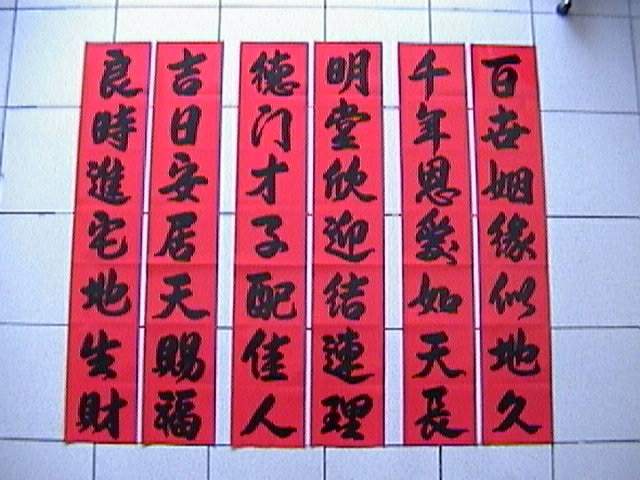 百世姻緣似地久
千年恩愛如天長
明堂欣迎結連理
德门才子配佳人
吉日安居天賜福
良時進宅地生財